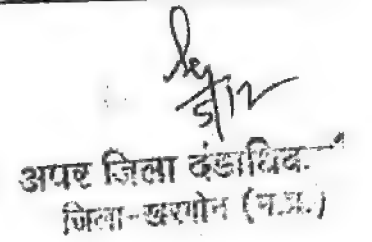 5/12
अपर जिला दंडाधिक
जिला-खरगोन (म.प्र.)